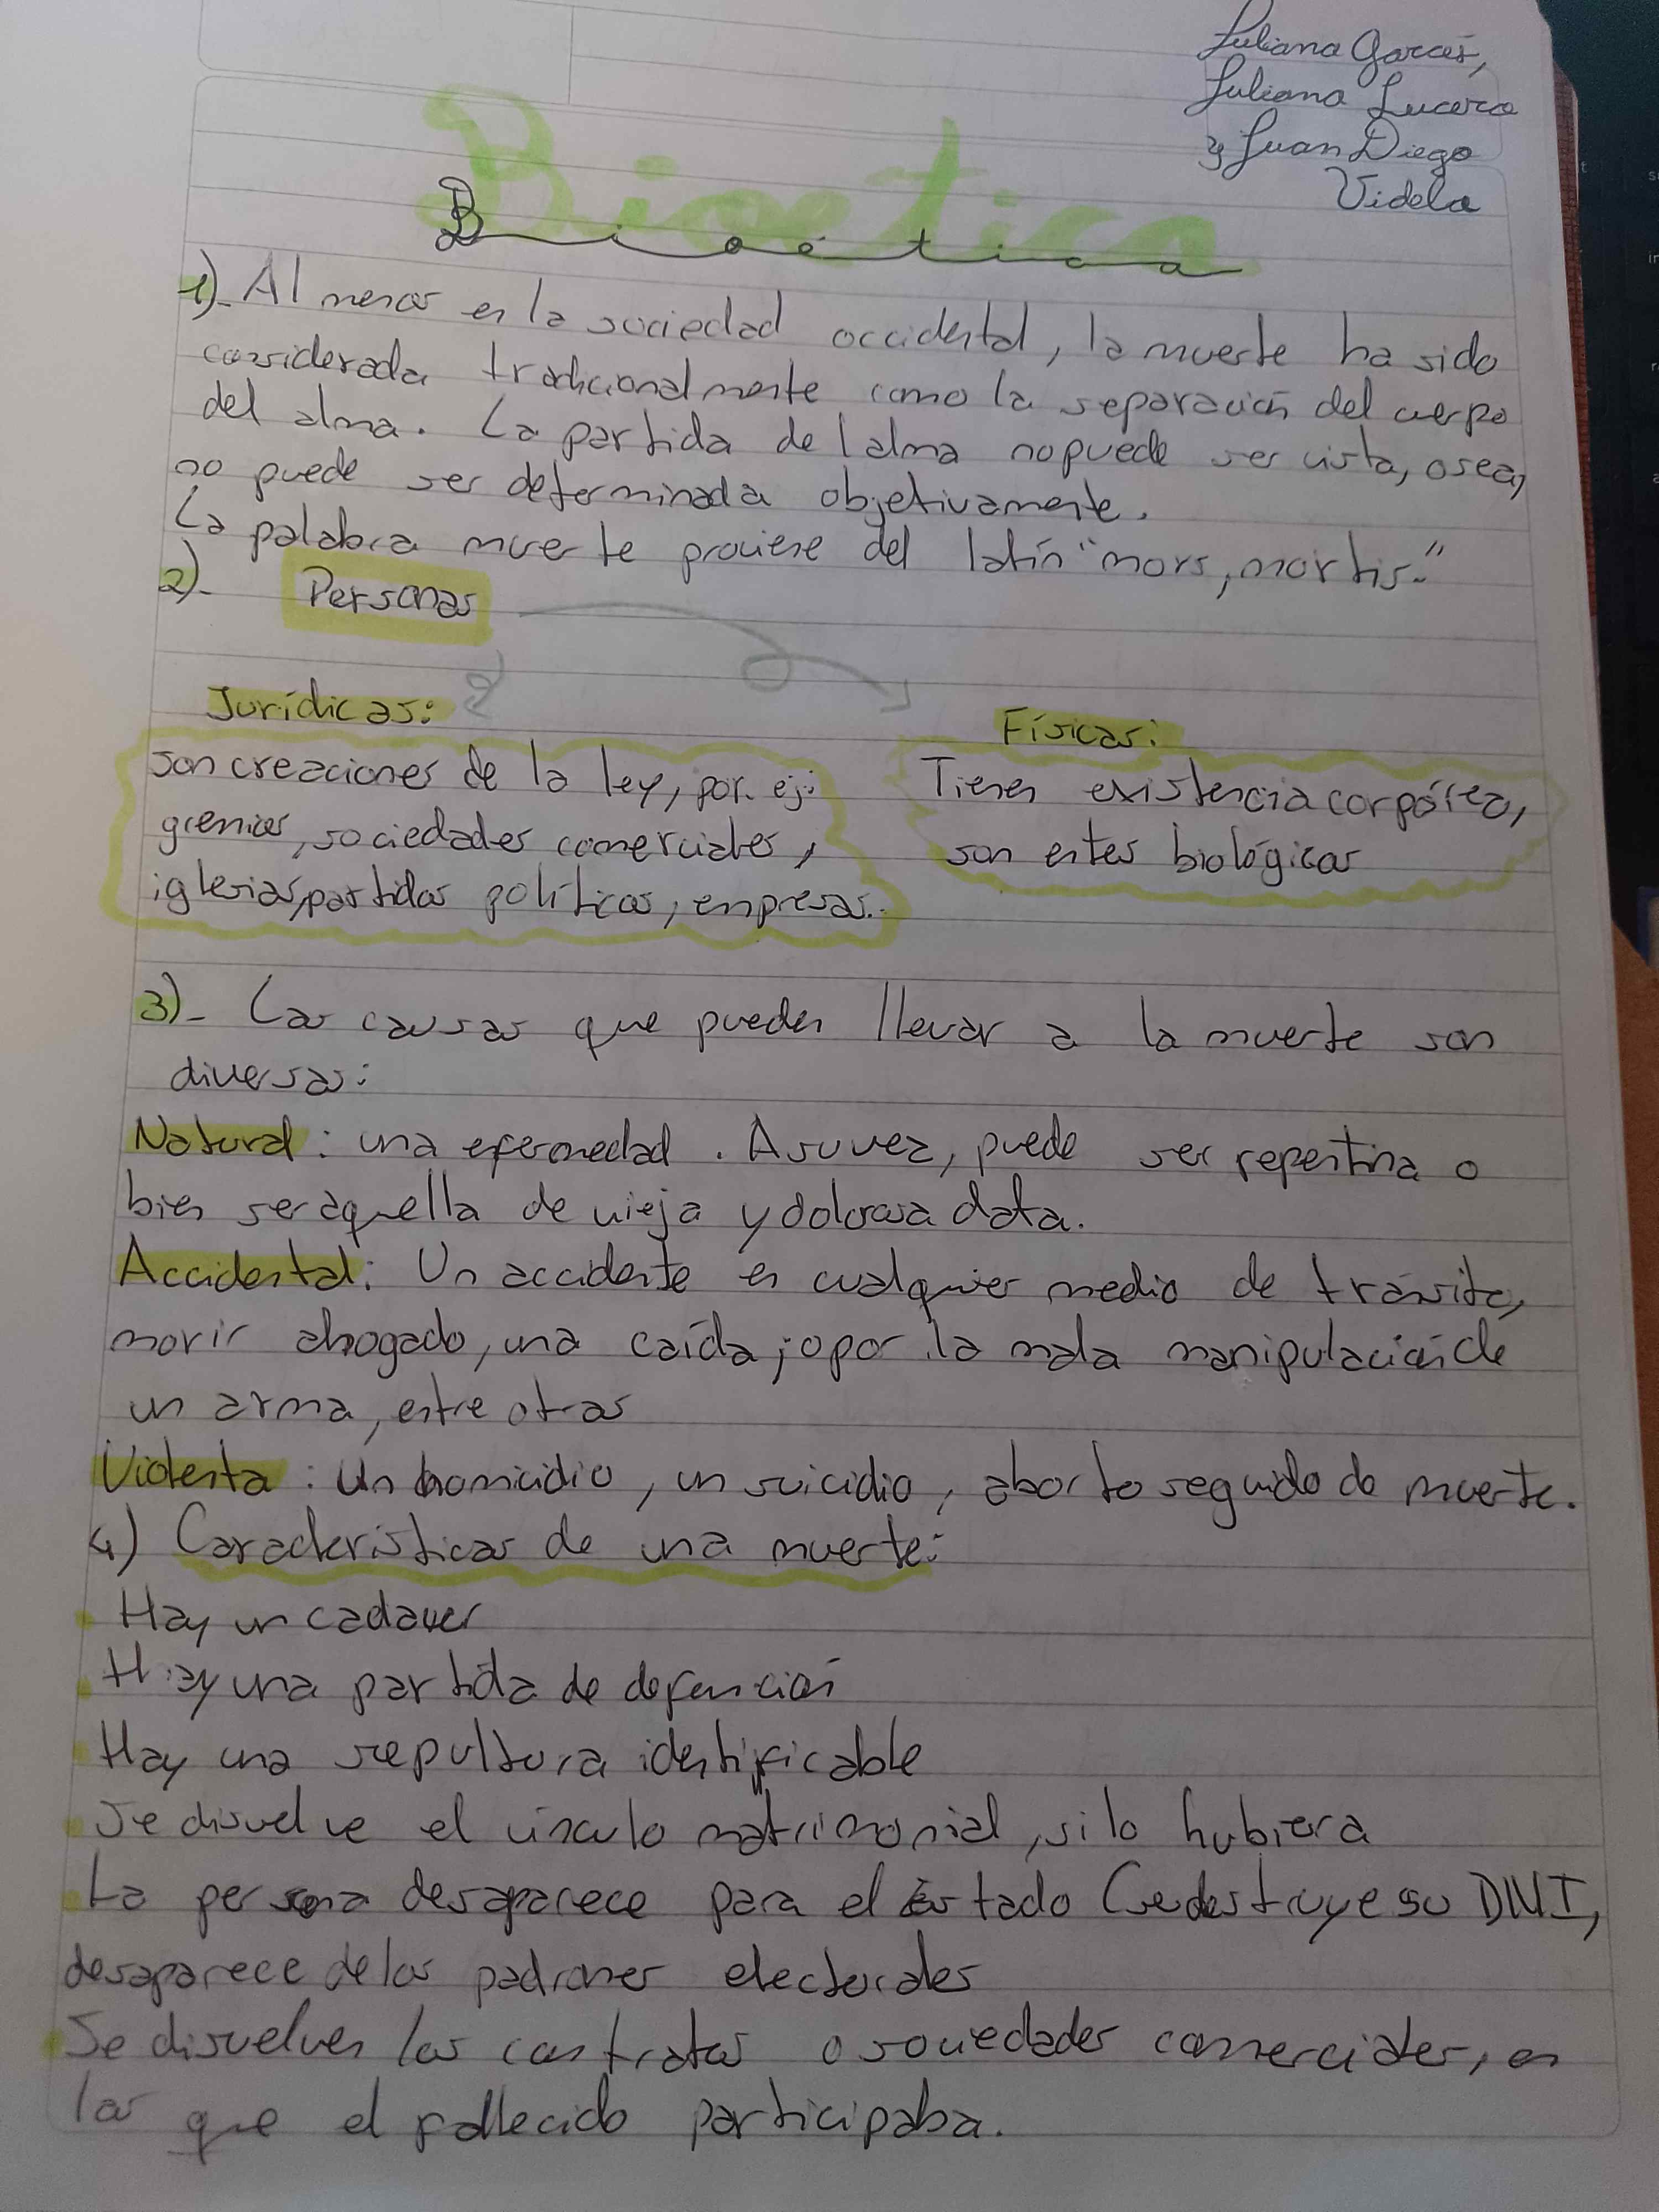 Juliana Garcés,
Juliana Lucero
y Juan Diego
Videla
Bioética
Bioética
1)- Al menos en la sociedad occidental, la muerte ha sido
considerada tradicionalmente como la separación del cuerpo
del alma. La partida del alma no puede ser vista, osea,
no puede ser determinada objetivamente.
La palabra muerte proviene del latín "mors, mortis."
2)- Personas
Jurídicas:
Físicas:
son creaciones de la ley, por ej:
gremios, sociedades comerciales,
iglesias, partidos políticos, empresas.
Tienen existencia corpórea,
son entes biológicos
3)- Las causas que pueden llevar a la muerte son
diversas:
Natural: una efermedad. A su vez, puede ser repentina o
bien ser aquella de vieja y dolorosa data.
Accidental: Un accidente en cualquier medio de tránsito,
morir ahogado, una caída; o por la mala manipulación de
un arma, entre otras
Violenta: Un homicidio, un suicidio, aborto seguido de muerte.
4) Características de una muerte:
• Hay un cadaver
• Hay una partida de defunción
• Hay una sepultura identificable
• Se disuelve el vínculo matrimonial, si lo hubiera
• La persona desaparece para el Estado (se destruye su DNI,
desaparece de los padrones electorales
• Se disuelven los contratos o sociedades comerciales, en
las que el fallecido participaba.